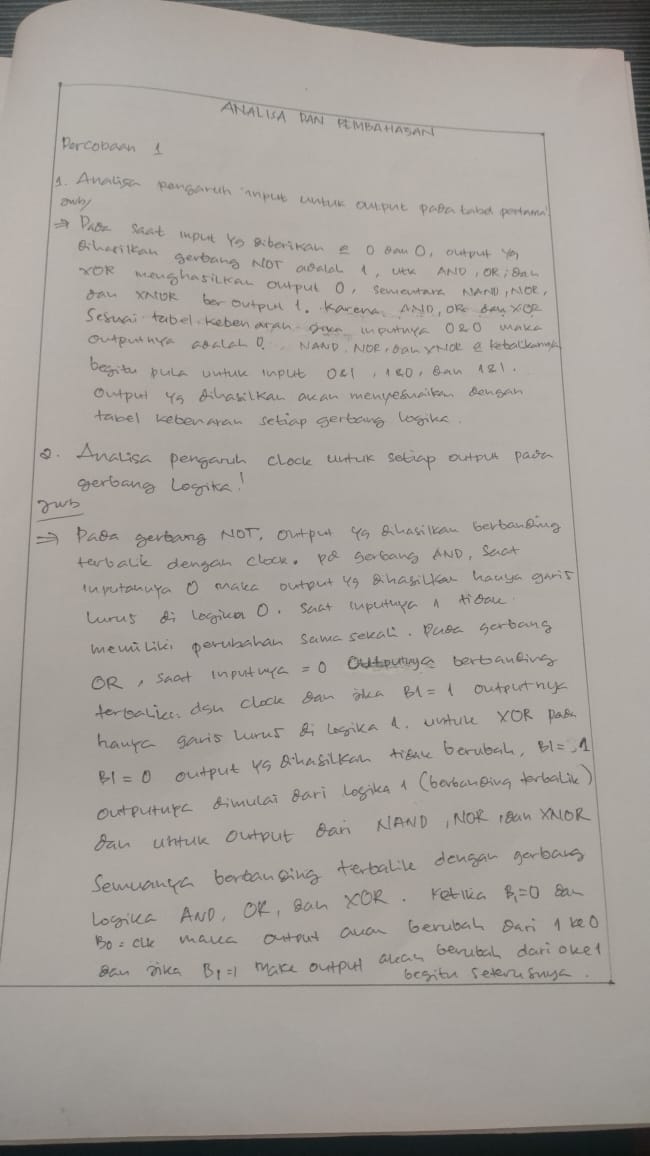 ANALISA DAN PEMBAHASAN
Percobaan 1
1. Analisa pengaruh input untuk output pada tabel pertama!
Jwb/
⇒ Pada saat input yg diberikan 0 dan 0, output yg
dihasilkan gerbang NOT adalah 1, utk AND, OR, dan
XOR menghasilkan output 0, sementara NAND, NOR,
dan XNOR ber output 1. Karena AND, OR dan XOR
Sesuai tabel kebenaran jika inputnya 0&0 maka
outputnya adalah 0. NAND, NOR, dan XNOR kebalikannya
begitu pula untuk input 0&1, 1&0, dan 1&1.
Output yg dihasilkan akan menyesuaikan dengan
tabel kebenaran setiap gerbang logika.
2. Analisa pengaruh clock untuk setiap output pada
gerbang logika!
Jwb
⇒ Pada gerbang NOT, output yg dihasilkan berbanding
terbalik dengan clock. pd gerbang AND, saat
inputanya 0 maka output yg dihasilkan hanya garis
lurus di logika 0. Saat inputnya 1 tidak
memiliki perubahan sama sekali. Pada gerbang
OR, saat inputnya = 0 Outputnya berbanding
terbalik dgn clock dan jika B1 = 1 outputnya
hanya garis lurus di logika 1. untuk XOR pada
B1 = 0 output yg dihasilkan tidak berubah, B1 = 1
outputnya dimulai dari logika 1 (berbanding terbalik)
dan untuk output dari NAND, NOR, dan XNOR
Semuanya berbanding terbalik dengan gerbang
logika AND, OR, dan XOR. Ketika B1=0 dan
B0 = clk maka output akan berubah dari 1 ke 0
dan jika B1=1 make output akan berubah dari 0 ke 1
begitu seterusnya.